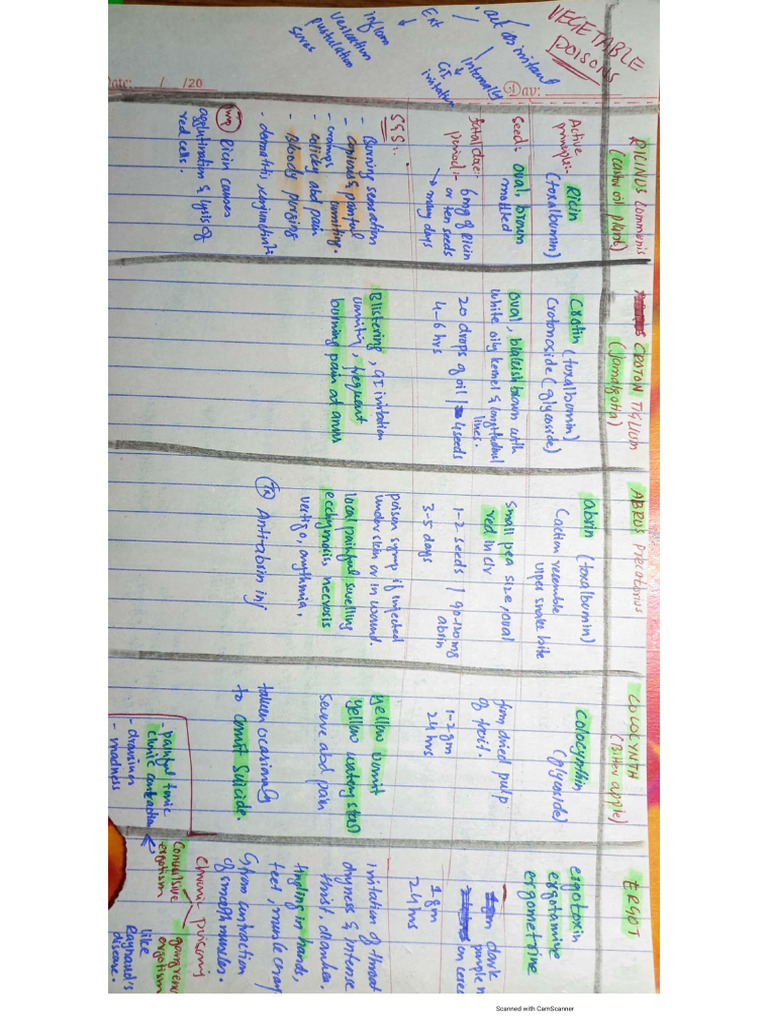 VEGETABLE
POISONS
act as irritant
Ext
Internally
GI
irritation
inflam
vesication
pustulation
sores
Day:
Date: / /20
RICINUS Communis
(castor oil plant)
Active
principle:-
Ricin
(toxalbumin)
Seed:- oval, brown
mottled
fatal dose:
period:-
6mg of Ricin
or ten seeds
→ many days
S&S:-
- Burning sensation
- copious & painful
vomiting.
- cramps
- colicky abd pain
- Bloody purging
- dermatitis, conjunctivitis
Imp
Ricin causes
agglutination & lysis of
red cells.
CROTON TIGLIUM
(Jamalgotta)
Crotin (toxalbumin)
Crotonoside (glycoside)
oval, blackish brown with
white oily kernel & longitudinal
lines.
20 drops of oil / 4 seeds
4-6 hrs
Blistering, GI irritation
vomiting, frequent
burning pain at anus
ABRUS Precatorius
abrin (toxalbumin)
Action resemble
viper snake bite
Small pea size, oval
red in clr
1-2 seeds / 90-120mg
abrin
3-5 days
poison syrup if injected
under skin or in wound.
local painful swelling
ecchymosis, necrosis
vertigo, arrythmia,
Rx Antiabrin inj
COLOCYNTH
(Bitter apple)
Colocynthin
(glycoside)
from dried pulp
of fruit.
1-2gm
24 hrs
yellow vomit
yellow watery stool
severe abd pain
taken ocasionaly
to commit suicide.
ERGOT
ergotoxin
ergotamine
ergometrine
dark
purple
on cerea
1gm
24hrs
irritation of throat
dryness & intense
thirst, diarrhea,
tingling in hands,
feet, muscle cramp
from contraction
of smooth muscles.
Chronic poisoning
Convulsive
ergotism
- painful tonic
clonic contraction
- drowsiness
- madness
gangrenou
ergotism
like
Raynaud's
disease.
Scanned with CamScanner